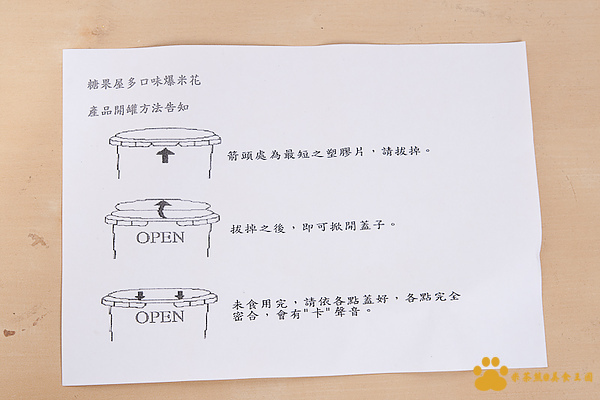 糖果屋多口味爆米花
產品開罐方法告知
箭頭處為最短之塑膠片，請拔掉。
OPEN
拔掉之後，即可掀開蓋子。
OPEN
未食用完，請依各點蓋好，各點完全
密合，會有"卡"聲音。